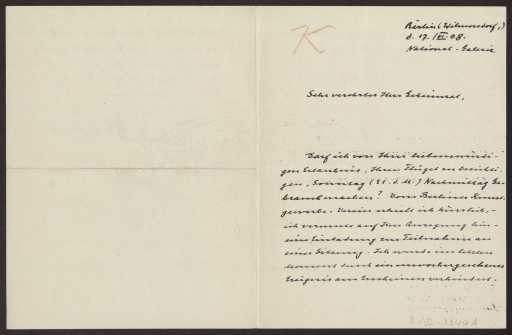 K
Berlin (Wilmersdorf,)
d. 17. III. 08.
National-Galerie
Sehr verehrter Herr Geheimrat,
Darf ich von Ihrer liebenswürdi-
gen Erlaubnis, Ihren Flügel zu besichti-
gen, Sonntag (21. d. M.) Nachmittag Ge-
brauch machen? Vom Berliner Kunst-
gewerbe-Verein erhielt ich kürzlich, –
ich vermute auf Ihre Anregung hin –
eine Einladung zur Teilnahme an
einer Sitzung. Ich wurde im letzten
Moment durch ein unvorhergesehenes
Ereignis am Erscheinen verhindert.